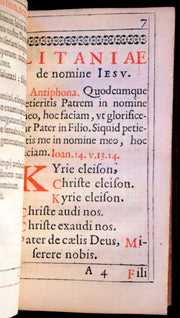 7
LITANIAE
de nomine IESV.
Antiphona. Quodcumque
petieritis Patrem in nomine
meo, hoc faciam, vt glorifice-
tur Pater in Filio. Siquid petie-
ritis me in nomine meo, hoc
faciam. Ioan. 14. v. 13. 14.
Kyrie eleison,
Christe eleison.
Kyrie eleison.
Christe audi nos.
Christe exaudi nos.
Pater de cælis Deus, Mi-
serere nobis.
A 4 Fili